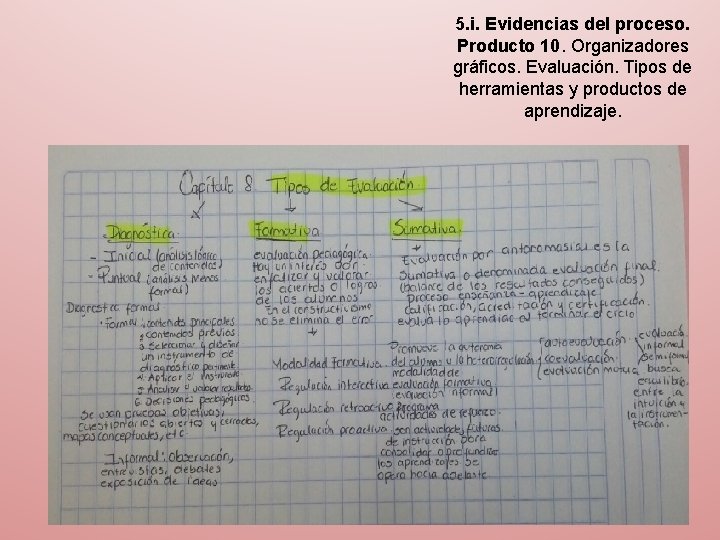 5. i. Evidencias del proceso.
Producto 10. Organizadores
gráficos. Evaluación. Tipos de
herramientas y productos de
aprendizaje.
Capítulo 8 Tipos de Evaluación
Diagnóstica
- Inicial (análisis lógico
de contenidos)
- Puntual (análisis menos
formal)
Diagnóstica formas
· Formal: contenidos principales
2 contenidos previos
3 Seleccionar y diseñar
un instrumento de
diagnóstico
4 Aplicar el instrumento
5 Analisar o valorar resultados
6 Decisiones pedagógicas
Se usan pruebas objetivas,
cuestionarios abiertos y cerrados,
mapas conceptuales, etc
Informal: Observación,
entrevistas, debates
exposición de ideas
Formativa
evaluación pedagógica.
Hay un interés
enfatizar y valorar
los aciertos o logros
de los alumnos
En el constructivismo
no se elimina el error
Modalidad formativa
Regulación interactiva evaluación formativa
(evaluación informal)
Regulación retroactiva programa
actividades de refuerzo
Regulación proactiva son actividades futuras
de instrucción para
consolidar o profundizar
los aprendizajes se
opera hacia adelante
Sumativa
Evaluación por antoromasia es la
Sumativa o denominada evaluación final.
(balance de los resultados conseguidos)
proceso enseñanza - aprendizaje
calificación, acreditación y certificación.
evalua lo aprendido al terminar el ciclo
Promueve la autonomia
del alumno y la
modalidad de
(autoevaluación
(coevaluación
(evaluación mutua
evaluació
informal
Semiformal
busca
equilibrio
entre la
intuición y
la instrumen-
tación.